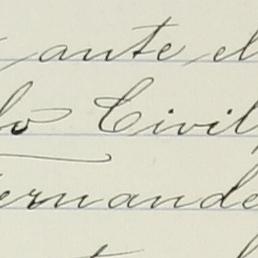 ante el
lo Civil,
ernande